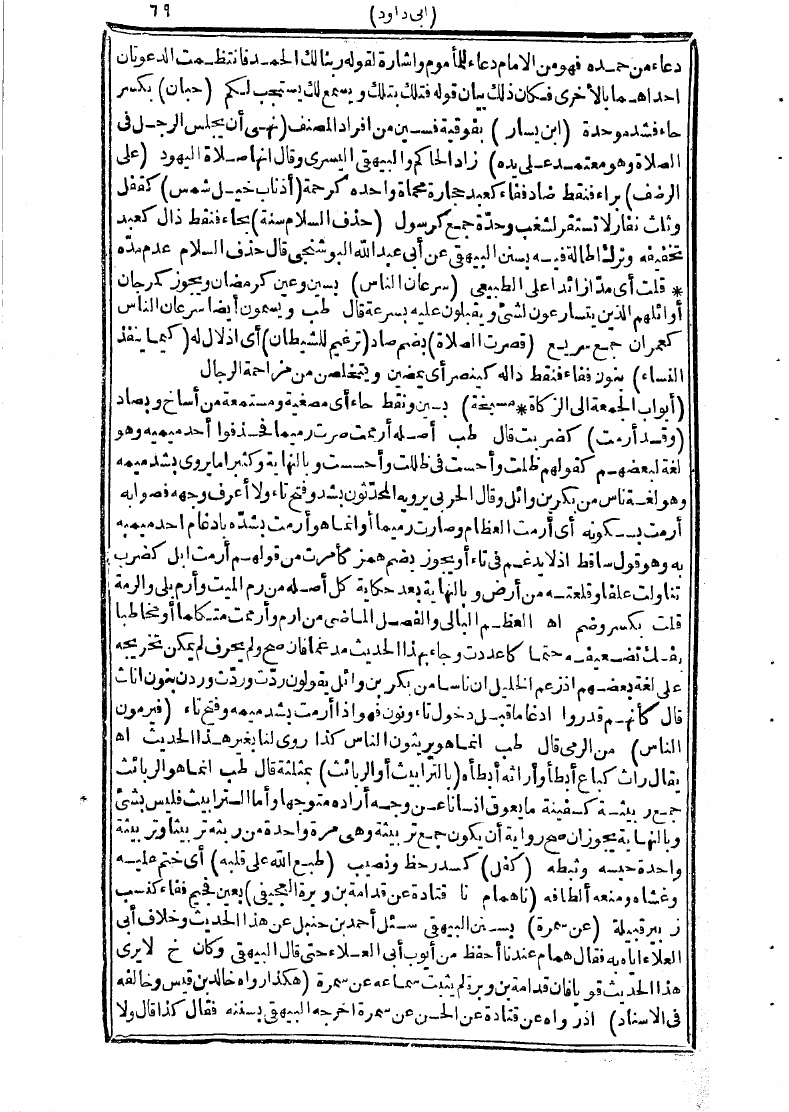 ٦٩ (ابى داود)
دعاء من حمده فهو من الامام دعاء للمأموم واشارة لقوله ربنا لك الحمد فانتظمت الدعوتان
احداهما بالأخرى فكان ذلك بيان قوله فتلك بتلك و يسمع لك يستجب لكم (حبان) بكسر
حاء فشد موحدة (ابن يسار) بفوقية فسين من افراد المصنف (نهى أن يجلس الرجل فى
الصلاة وهو معتمد على يده) زاد الحاكم والبيهقى اليسرى وقال انها صلاة اليهود (على
الرضف) براء فنقط ضاد ففاء كعبد حجارة محماة واحده كرحمة (أذناب خيل شمس) كقفل
وثاث نفار لا تستقر لشغب وحدة جمع كرسول (حذف السلام سنة) بحاء فنقط ذال كعبد
تخفيفه وترك اطالة فيه بسنن البيهقى عن أبى عبد الله البوشنجى قال حذف السلام عدم مده
* قلت أى مدا زائدا على الطبيعى (سرعان الناس) بسين وعين كرمضان ويجوز كرجان
أوائلهم الذين يتسارعون لشئ و يقبلون عليه بسرعة قال طب و يسمون أيضا سرعان الناس
كعمران جمع سريع (قصرت الصلاة) بضم صاد (ترغيم للشيطان) أى اذلال له (كيما ينفذ
النساء) بنون ففاء فنقط داله كينصر أى يمضين و يتخلصن من مزاحمة الرجال
(أبواب الجمعة الى الزكاة * مسيخة) بسين ونقط حاء أى مصغية ومستمعة من أساخ وبصاد
(وقد أرمت) كضربت قال طب أصله أرممت صرت رميما فحذفوا أحد ميميه وهو
لغة لبعضهم كقولهم ظلت وأحست فى ظللت وأحسست و بالنهاية وكثيرا ما يروى بشد ميمه
وهو لغة ناس من بكر بن وائل وقال الحربى يرويه المحدثون بشد وفتح تاء ولا أعرف وجهه فصوابه
أرمت بسكونه أى أرمت العظام وصارت رميما أو انما هو أرمت بشده بادغام احد ميميه
به وهو قول ساقط اذ لا يدغم فى تاء أو يجوز بضم همز كأمرت من قولهم أرمت ابل كضرب
تناولت علفا وقلعته من أرض و بالنهاية بعد حكاية كل أصله من رم الميت وأرم بلى والرمة
قلت بكسر وضم اه العظم البالى والفعل الماضى من ارم وأرممت متكلما أو مخاطبا
بفك تضعيفه حتما كاعددت وجاء بهذا الحديث مدغما فان صح ولم يحرف لم يمكن تخريجه
على لغة بعضهم اذ زعم الخليل ان ناسا من بكر بن وائل يقولون ردت وردت وردن بنون اناث
قال كأنهم قدروا ادغاما قبل دخول تاء ونون فهو اذا أرمت بشد ميمه وفتح تاء (فيرمون
الناس) من الرمى قال طب انما هو يربثون الناس كذا روى لنا بغير هذا الحديث اه
يقال راث كباع أبطأ وأراثه أبطأه (بالترابيث أو الربائث) بمثلثة قال طب انما هو الربائث
جمع ربيثة كسفينة ما يعوق انسانا عن وجه أراده متوجها وأما الترابيث فليس بشئ
وبالنهاية يجوز ان صح رواية أن يكون جمع تربيثة وهى مرة واحدة من ربثه تربيثا وتربيثة
واحدة حبسه وثبطه (كفل) كسدر حظ ونصيب (طبع الله على قلبه) أى ختم عليه
وغشاه ومنعه ألطافه (نا همام نا قتادة عن قدامة بن وبرة العجيفى) بعين فجيم ففاء كنسب
زبير قبيلة (عن سمرة) بسنن البيهقى سئل أحمد بن حنبل عن هذا الحديث وخلاف أبى
العلاء اياه به فقال همام عندنا أحفظ من أيوب أبى العلاء حتى قال البيهقى وكان خ لا يرى
هذا الحديث قويا فان قدامة بن وبرة لم يثبت سماعه عن سمرة (هكذا رواه خالد بن قيس وخالفه
فى الاسناد) اذ رواه عن قتادة عن الحسن عن سمرة اخرجه البيهقى بسننه فقال كذا قال ولا